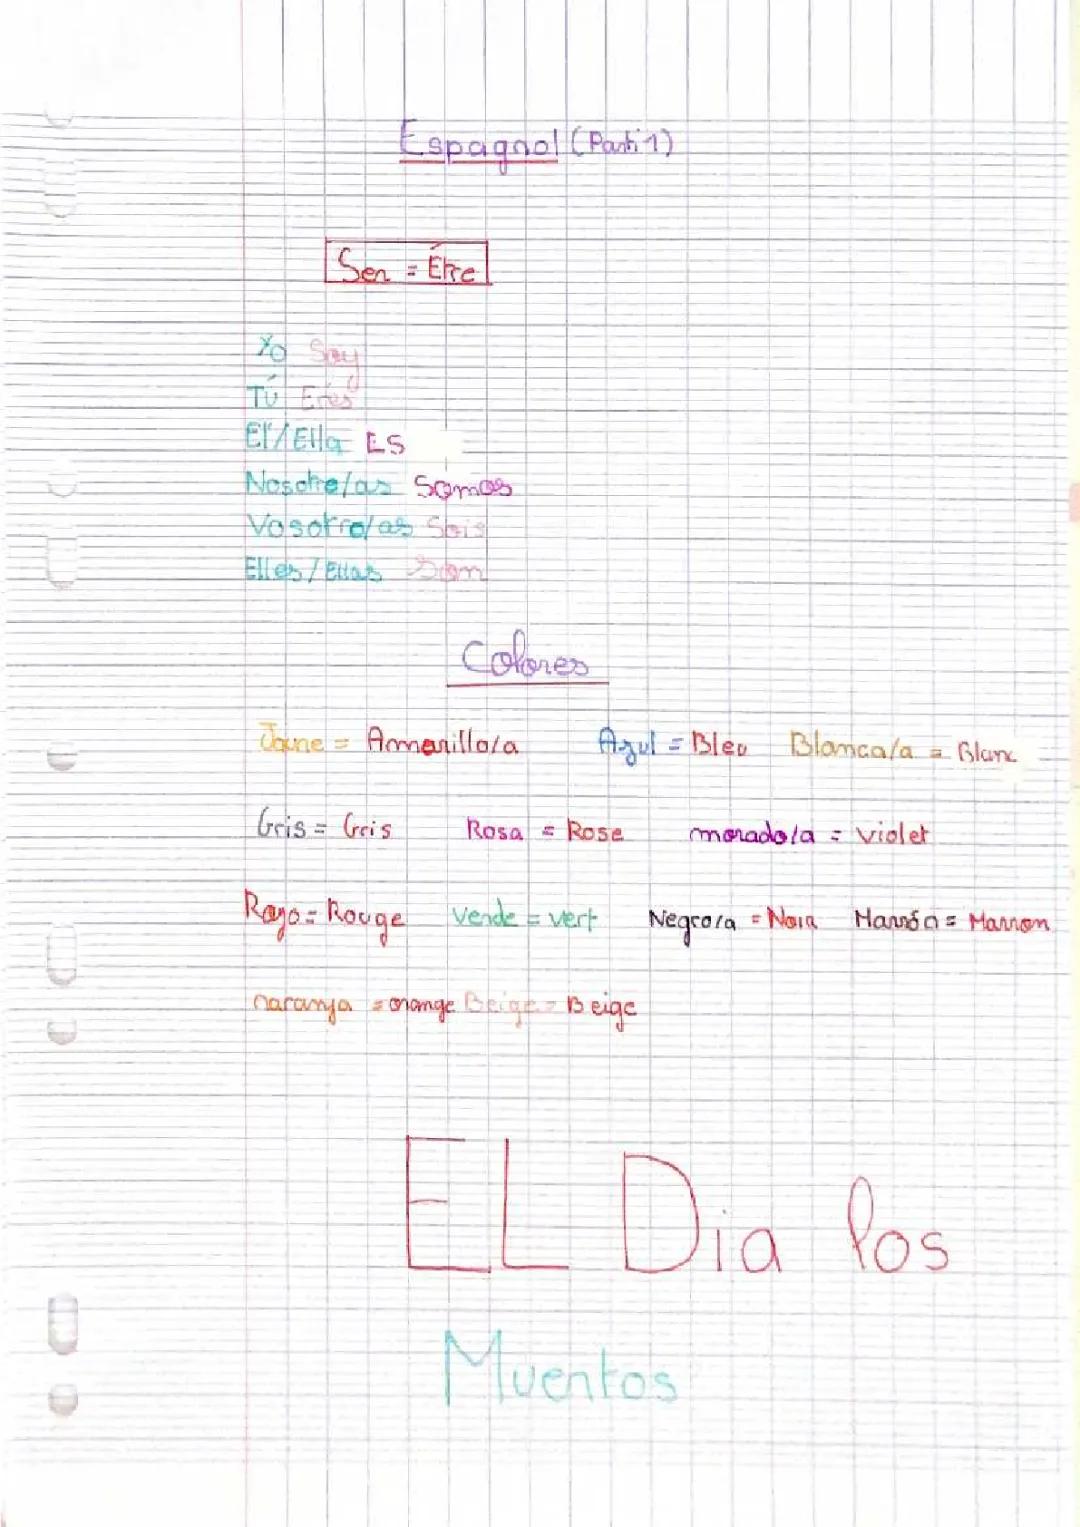 Espagnol (Parti 1)
Ser = Être
Yo Soy
Tú Eres
El/Ella ES
Nosotro/as Somos
Vosotro/as Sois
Elles/Ellas Son
Colores
Jaune = Amarillo/a Azul = Bleu Blanca/a = Blanc
Gris = Gris Rosa = Rose morado/a = Violet
Rojo = Rouge Verde = vert Negro/a = Noir Marrón = Marron
naranja = orange Beige = Beige
EL Dia los
Muertos